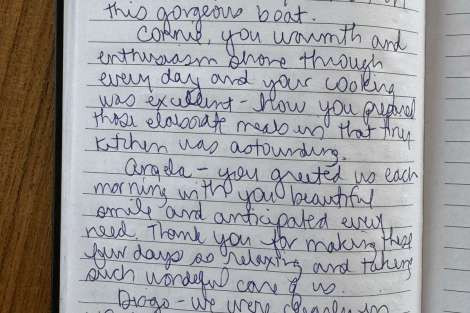 this gorgeous boat.
Connie, you warmth and
enthusiasm shone through
every day and your cooking
was excellent - how you prepared
those elaborate meals in that tiny
kitchen was astounding.
Angela - you greeted us each
morning with you beautiful
smile and anticipated every
need. Thank you for making these
few days so relaxing and taking
such wonderful care of us.
Diogo - we were clearly in